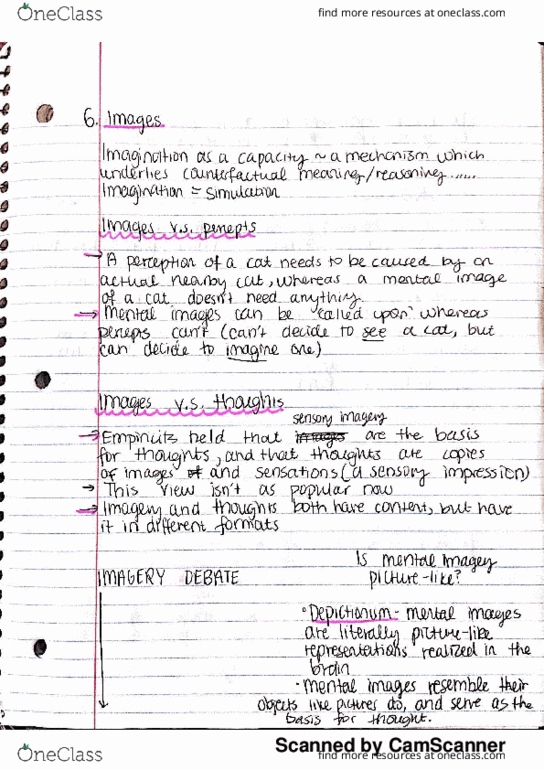 OneClass
find more resources at oneclass.com
6. Images
Imagination as a capacity ~ a mechanism which
underlies counterfactual meaning/reasoning......
Imagination = simulation
Images v.s. percepts
→ A perception of a cat needs to be caused by an
actual nearby cat, whereas a mental image
of a cat doesn't need anything.
→ Mental images can be "called upon" whereas
perceps can't (can't decide to see a cat, but
can decide to imagine one)
Images v.s. thoughts
sensory imagery
→ Empiricits held that images are the basis
for thoughts, and that thoughts are copies
of images of and sensations (a sensory impression)
→ This view isn't as popular now
→ Imagery and thoughts both have content, but have
it in different formats
Is mental imagery
picture-like?
IMAGERY DEBATE
• Depictionum - mental images
are literally picture-like
representations realized in the
brain
• mental images resemble their
objects like pictures do, and serve as the
basis for thought.
Scanned by CamScanner
OneClass
find more resources at oneclass.com